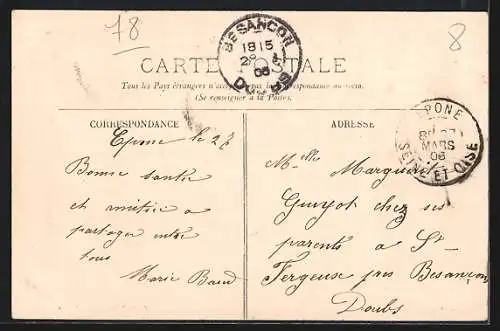 78
8
BESANCON
1815
28
06
DOUBS
CARTE POSTALE
Tous les Pays étrangers n'acceptent pas la Correspondance au recto.
(Se renseigner à la Poste).
CORRESPONDANCE
ADRESSE
EPONE
MARS
06
SEINE ET OISE
Epone le 27
Bonne santé
et amitié a
partager entre
tous
Marie
Melle Marguerite
Guyot chez ses
parents a St
Fergeux pres Besançon
Doubs